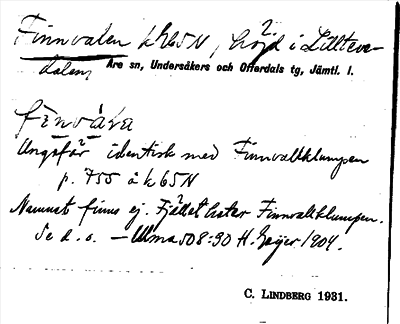 Finnvalen k 65N, höjd i Lillteve-
dalen, Åre sn, Undersåkers och Offerdals tg, Jämtl. l.
Ungefär identisk med Finnvallklumpen
p. 755 å k 65N
Namnet finns ej. Fjället heter Finnvallklumpen.
Se d. o. — Ulma 508:90 H. Geijer 1904.
C. LINDBERG 1931.